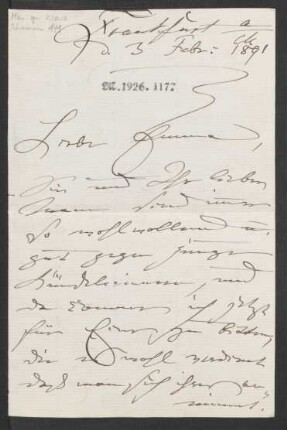 Frankfurt a
d. 3 Febr: 1891
M.1926.1177
Liebe Emma,
Sie und Ihr lieber
Mann sind immer
so wohlwollend u.
gut gegen junge
Künstlerinnen, und
da komme ich jetzt
für Eine zu bitten,
die es wohl verdient
daß man sich ihrer an
nimmt.